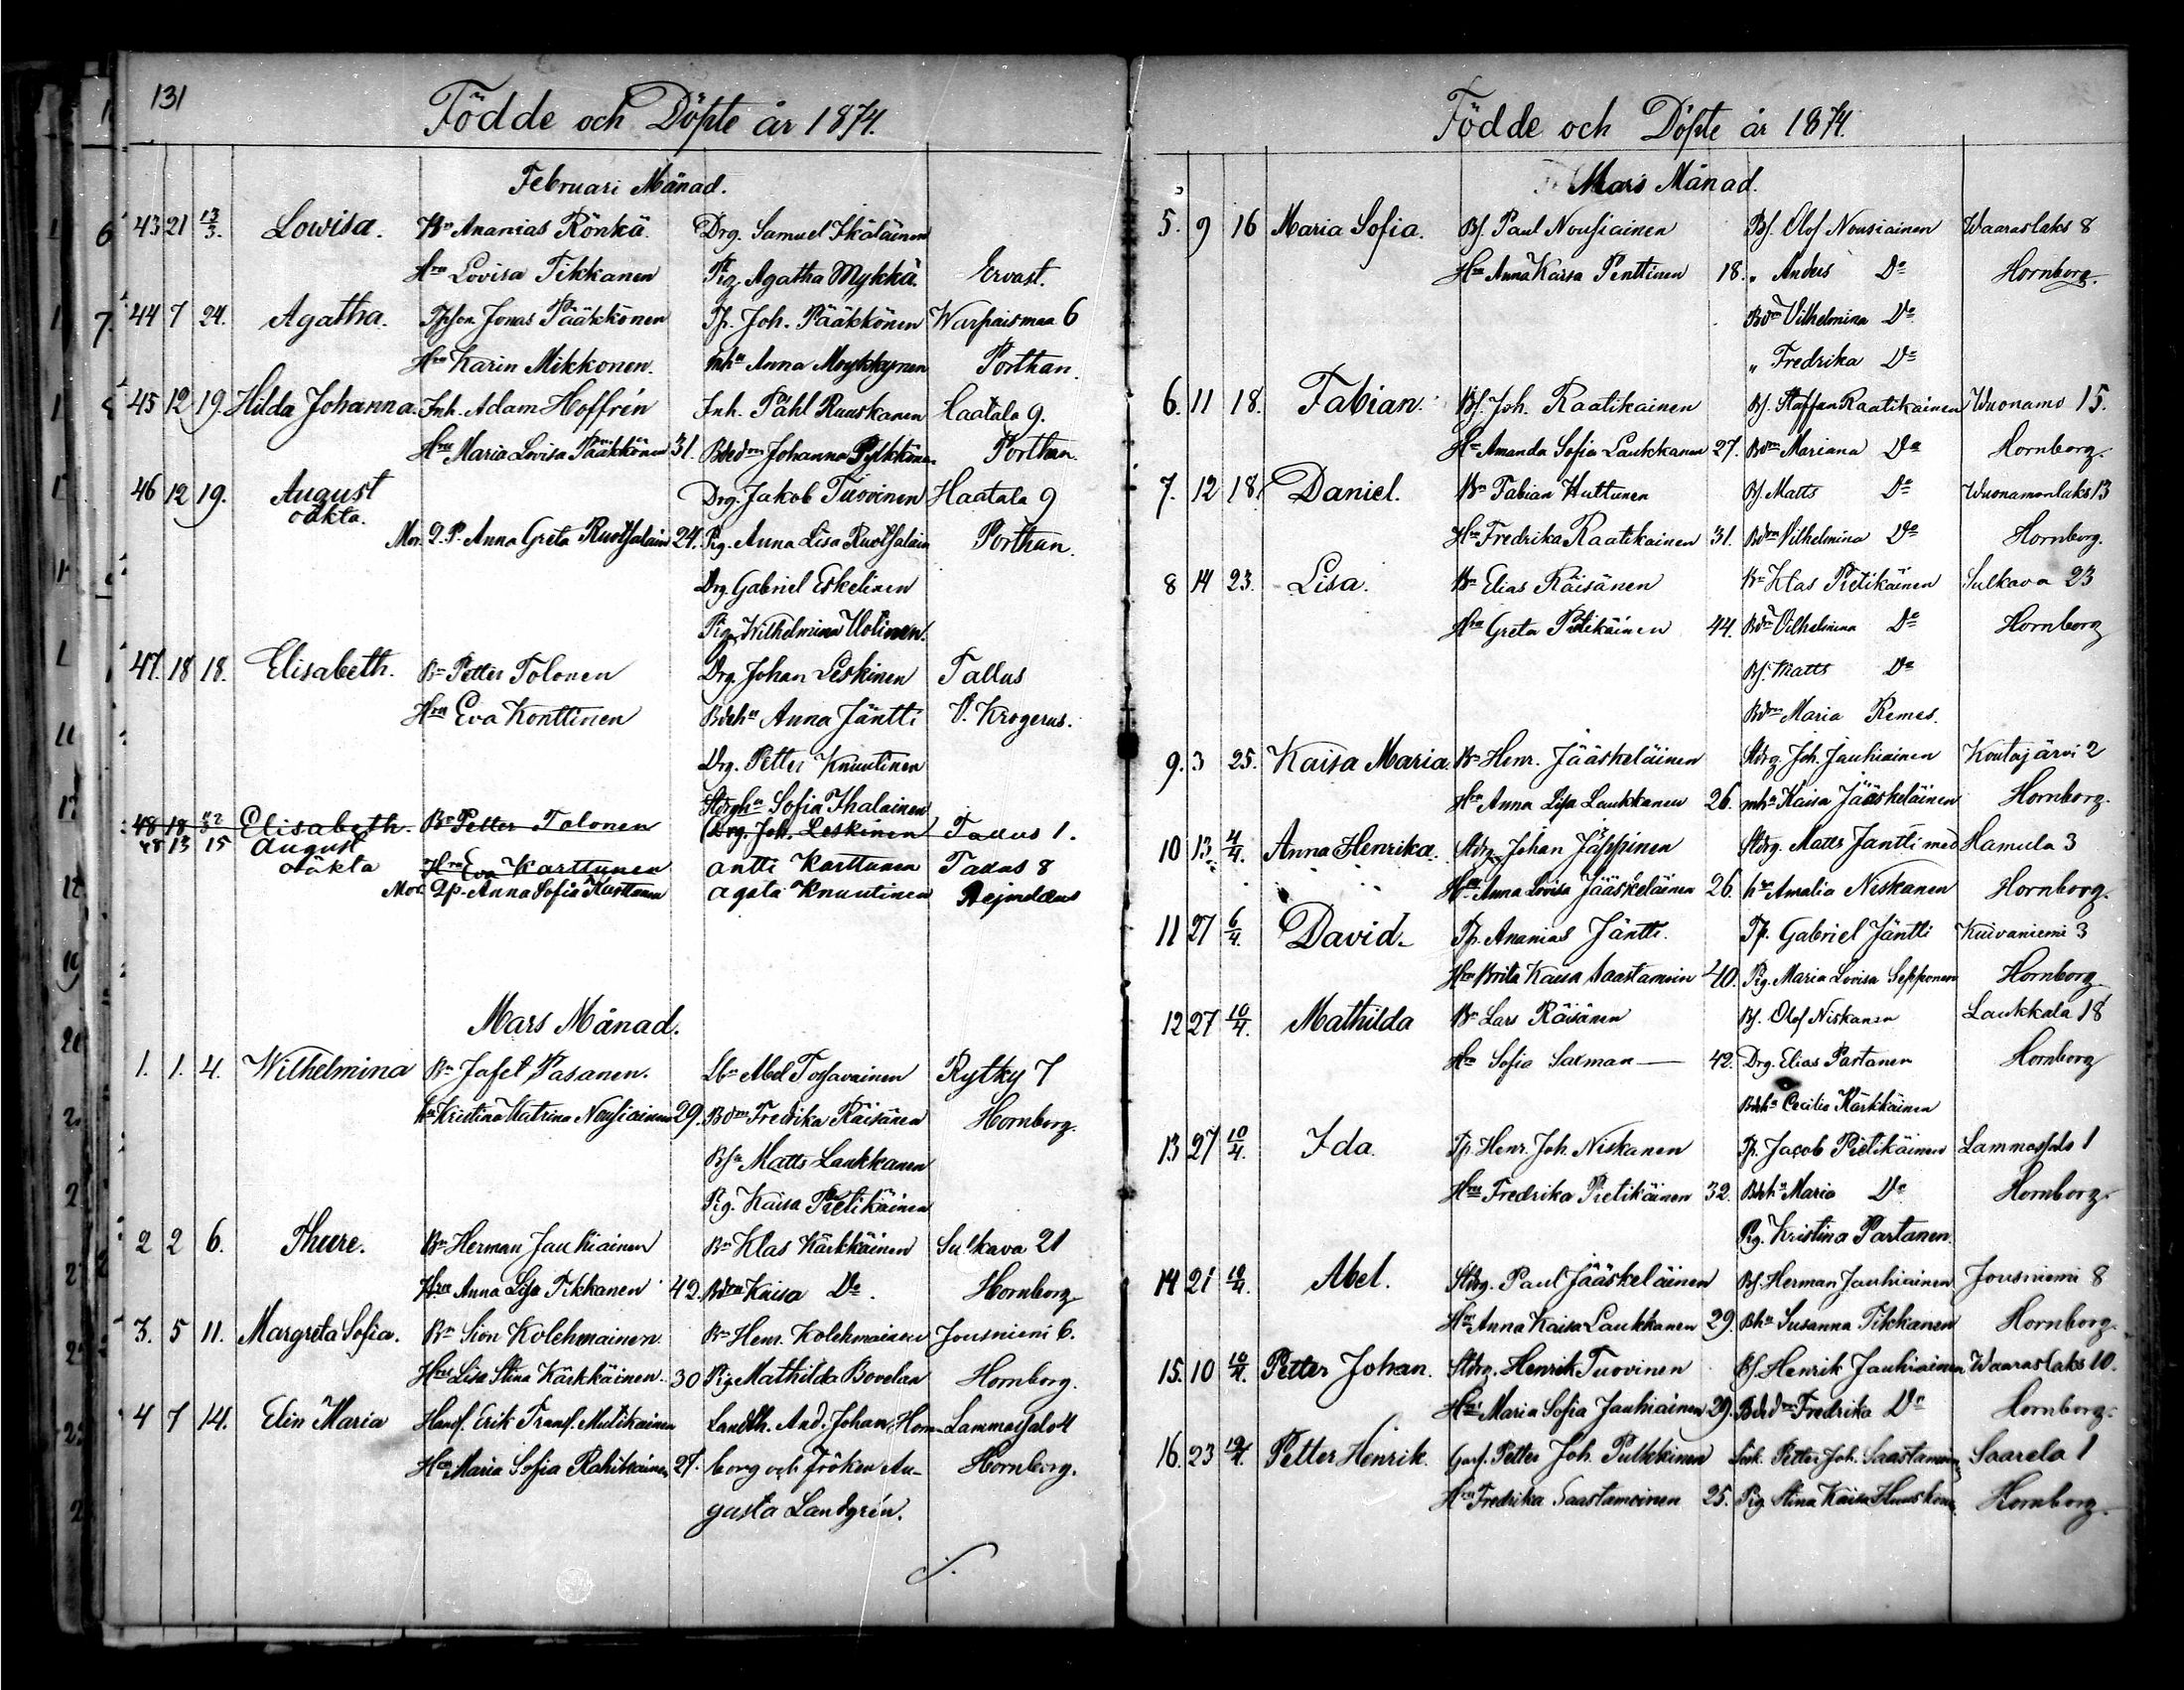 131
Födde och Döpte år 1874.
Februari Månad.
43 21 13/3. Lowisa. Bn Ananias Rönkä. Drg. Samuel Ikäläinen
Hru Lovisa Tikkanen Pig. Agatha Mykkä. Ervast.
44 7 24. Agatha. Jonas Pääkkönen Tp. Joh. Pääkkönen Warpaismaa 6
Hru Karin Mikkonen. Inhn Anna Moykkynen Porthan.
45 12 19. Hilda Johanna. Inh. Adam Hoffrén Inh. Påhl Ruuskanen Haatala 9.
Hru Maria Lovisa Pääkkönen 31. Johanna Pylkkönen Porthan.
46 12 19. August Drg. Jakob Tuovinen Haatala 9
oäkta.
Mor. Q.P. Anna Greta Ruotsalain 24. Pig. Anna Lisa Ruotsalain Porthan.
Drg. Gabriel Eskelinen
Pig. Wilhelmina Uotinen.
47. 18 18. Elisabeth. Bn Petter Tolonen Drg. Johan Leskinen Tallus
Hru Eva Konttinen Anna Jäntti V. Krogerus.
Drg. Petter Knuutinen
Sofia Ihalainen
48 18 Elisabeth. Bn Petter Tolonen (Drg. Joh. Leskinen Tallus 1.
48 13 15 August
oäkta Hru Eva Karttunen Antti Karttunen Tallus 8
Mor. Qp. Anna Sofia Karttunen Agata Knuutinen
Mars Månad.
1. 1. 4. Wilhelmina Bn Jafet Pasanen. Lbn Abel Tossavainen Rytky 7
hu Kristina Katrina Nousiainen 29. Bdrn Fredrika Räisänen Hornborg.
Bsn Matts Laukkanen
Pig. Kaisa Pietikäinen
2 2 6. Thure. Bn Herman Jauhiainen Bn Klas Kärkkäinen Sulkava 21
Hru Anna Lisa Tikkanen 42. Bdrn Kaisa Do. Hornborg
3. 5 11. Margreta Sofia. Bn Sion Kolehmainen Bn Henr. Kolehmainen Jousniemi 6.
Hru Lisa Stina Kärkkäinen. 30 Pig. Mathilda Bovelan Hornborg.
4 7 14. Elin Maria Handl. Erik Transf. Mutikainen Landth. And. Johan Horn- Lammassalo 4
Hru Maria Sofia Rahikainen 27. borg och Fröken Au- Hornborg.
gusta Landgrén.
Födde och Döpte år 1874.
Mars Månad.
5. 9 16 Maria Sofia. Bs. Paul Nousiainen Bs. Olof Nousiainen Waaraslaks 8
Hu Anna Kaisa Penttinen 18. „ Anders Do Hornborg.
Bdrn Vilhelmina Do
„ Fredrika Do
6. 11 18. Fabian. Bs. Joh. Raatikainen Bs. Staffan Raatikainen Wuonamo 15.
Hu Amanda Sofia Laukkanen 27. Bdrn Mariana Do Hornborg.
7. 12 18. Daniel. Bn Fabian Huttunen Bs. Matts Do Wuonamonlaks 13
Hru Fredrika Raatikainen 31. Bdrn Vilhelmina Do Hornborg.
8 14 23. Lisa. Bn Elias Räisänen Bn Klas Pietikäinen Sulkava 23
Hru Greta Pietikäinen 44. Bdrn Vilhelmina Do Hornborg
Bs. Matts Do
Bdrn Maria Remes.
9. 3 25. Kaisa Maria Bn Henr. Jääskeläinen Stdrg. Joh. Jauhiainen Koutajärvi 2
Hru Anna Lisa Laukkanen 26. Kaisa Jääskeläinen Hornborg.
10 13 4/4. Anna Henrika. Stdrg. Johan Jäppinen Stdrg. Matts Jäntti med Hamula 3
Hru Anna Lovisa Jääskeläinen 26. hu Amalia Niskanen Hornborg.
11 27 6/4. David. Tp. Ananias Jäntti. Tp. Gabriel Jäntti Kuivaniemi 3
Hru Brita Kaisa Saastamoin 40. Pig. Maria Lovisa Sepponen Hornborg
12 27 10/4. Mathilda Bn Lars Räisänen Bs. Olof Niskanen Laukkala 18
Hu Sofia Saxman 42. Drg. Elias Partanen Hornborg
Cecilia Kärkkäinen
13 27 10/4. Ida. Tp. Henr. Joh. Niskanen Tp. Jacob Pietikäinen Lammassalo 1
Hru Fredrika Pietikäinen 32. Maria Do Hornborg.
Pig. Kristina Partanen.
14 21 10/4. Abel. Stdrg. Paul Jääskeläinen Bs. Herman Jauhiainen Jousniemi 8
Hru Anna Kaisa Laukkanen 29. Bhu Susanna Tikkanen Hornborg.
15. 10 10/4. Petter Johan. Stdrg. Henrik Tuovinen Bs. Henrik Jauhiainen Waaraslaks 10.
Hru Maria Sofia Jauhiainen 29. Fredrika Do Hornborg.
16. 23 Petter Henrik. Petter Joh. Pulkkinen Petter Joh. Saastamoin Saarela 1
Hru Fredrika Saastamoinen 25. Pig. Stina Kaisa Huuskon Hornborg.